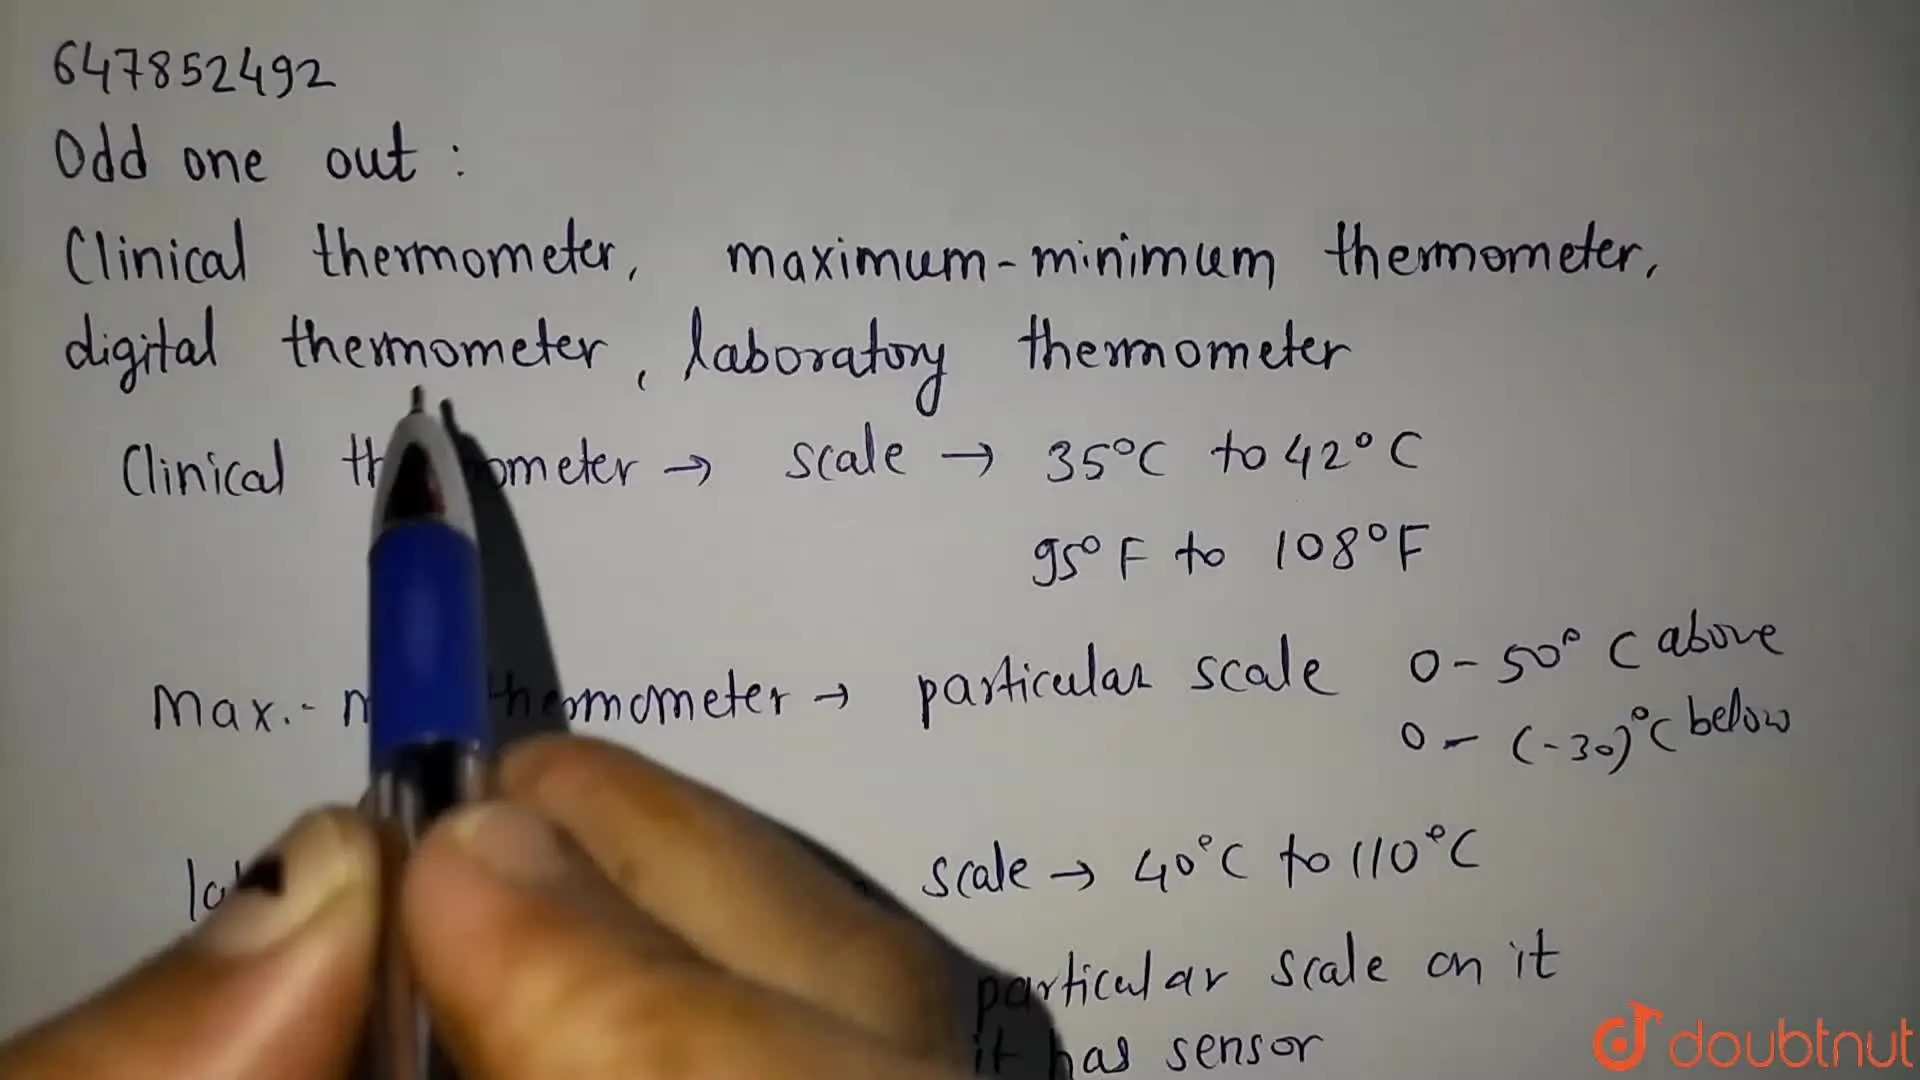 647852492
Odd one out :
Clinical thermometer, maximum-minimum thermometer,
digital thermometer, laboratory thermometer
Clinical → scale → 35°C to 42°C
95°F to 108°F
Max.- thermometer → particular scale 0-50°C above
0-(-30)°C below
scale → 40°C to 110°C
particular scale on it
it has sensor
doubtnut